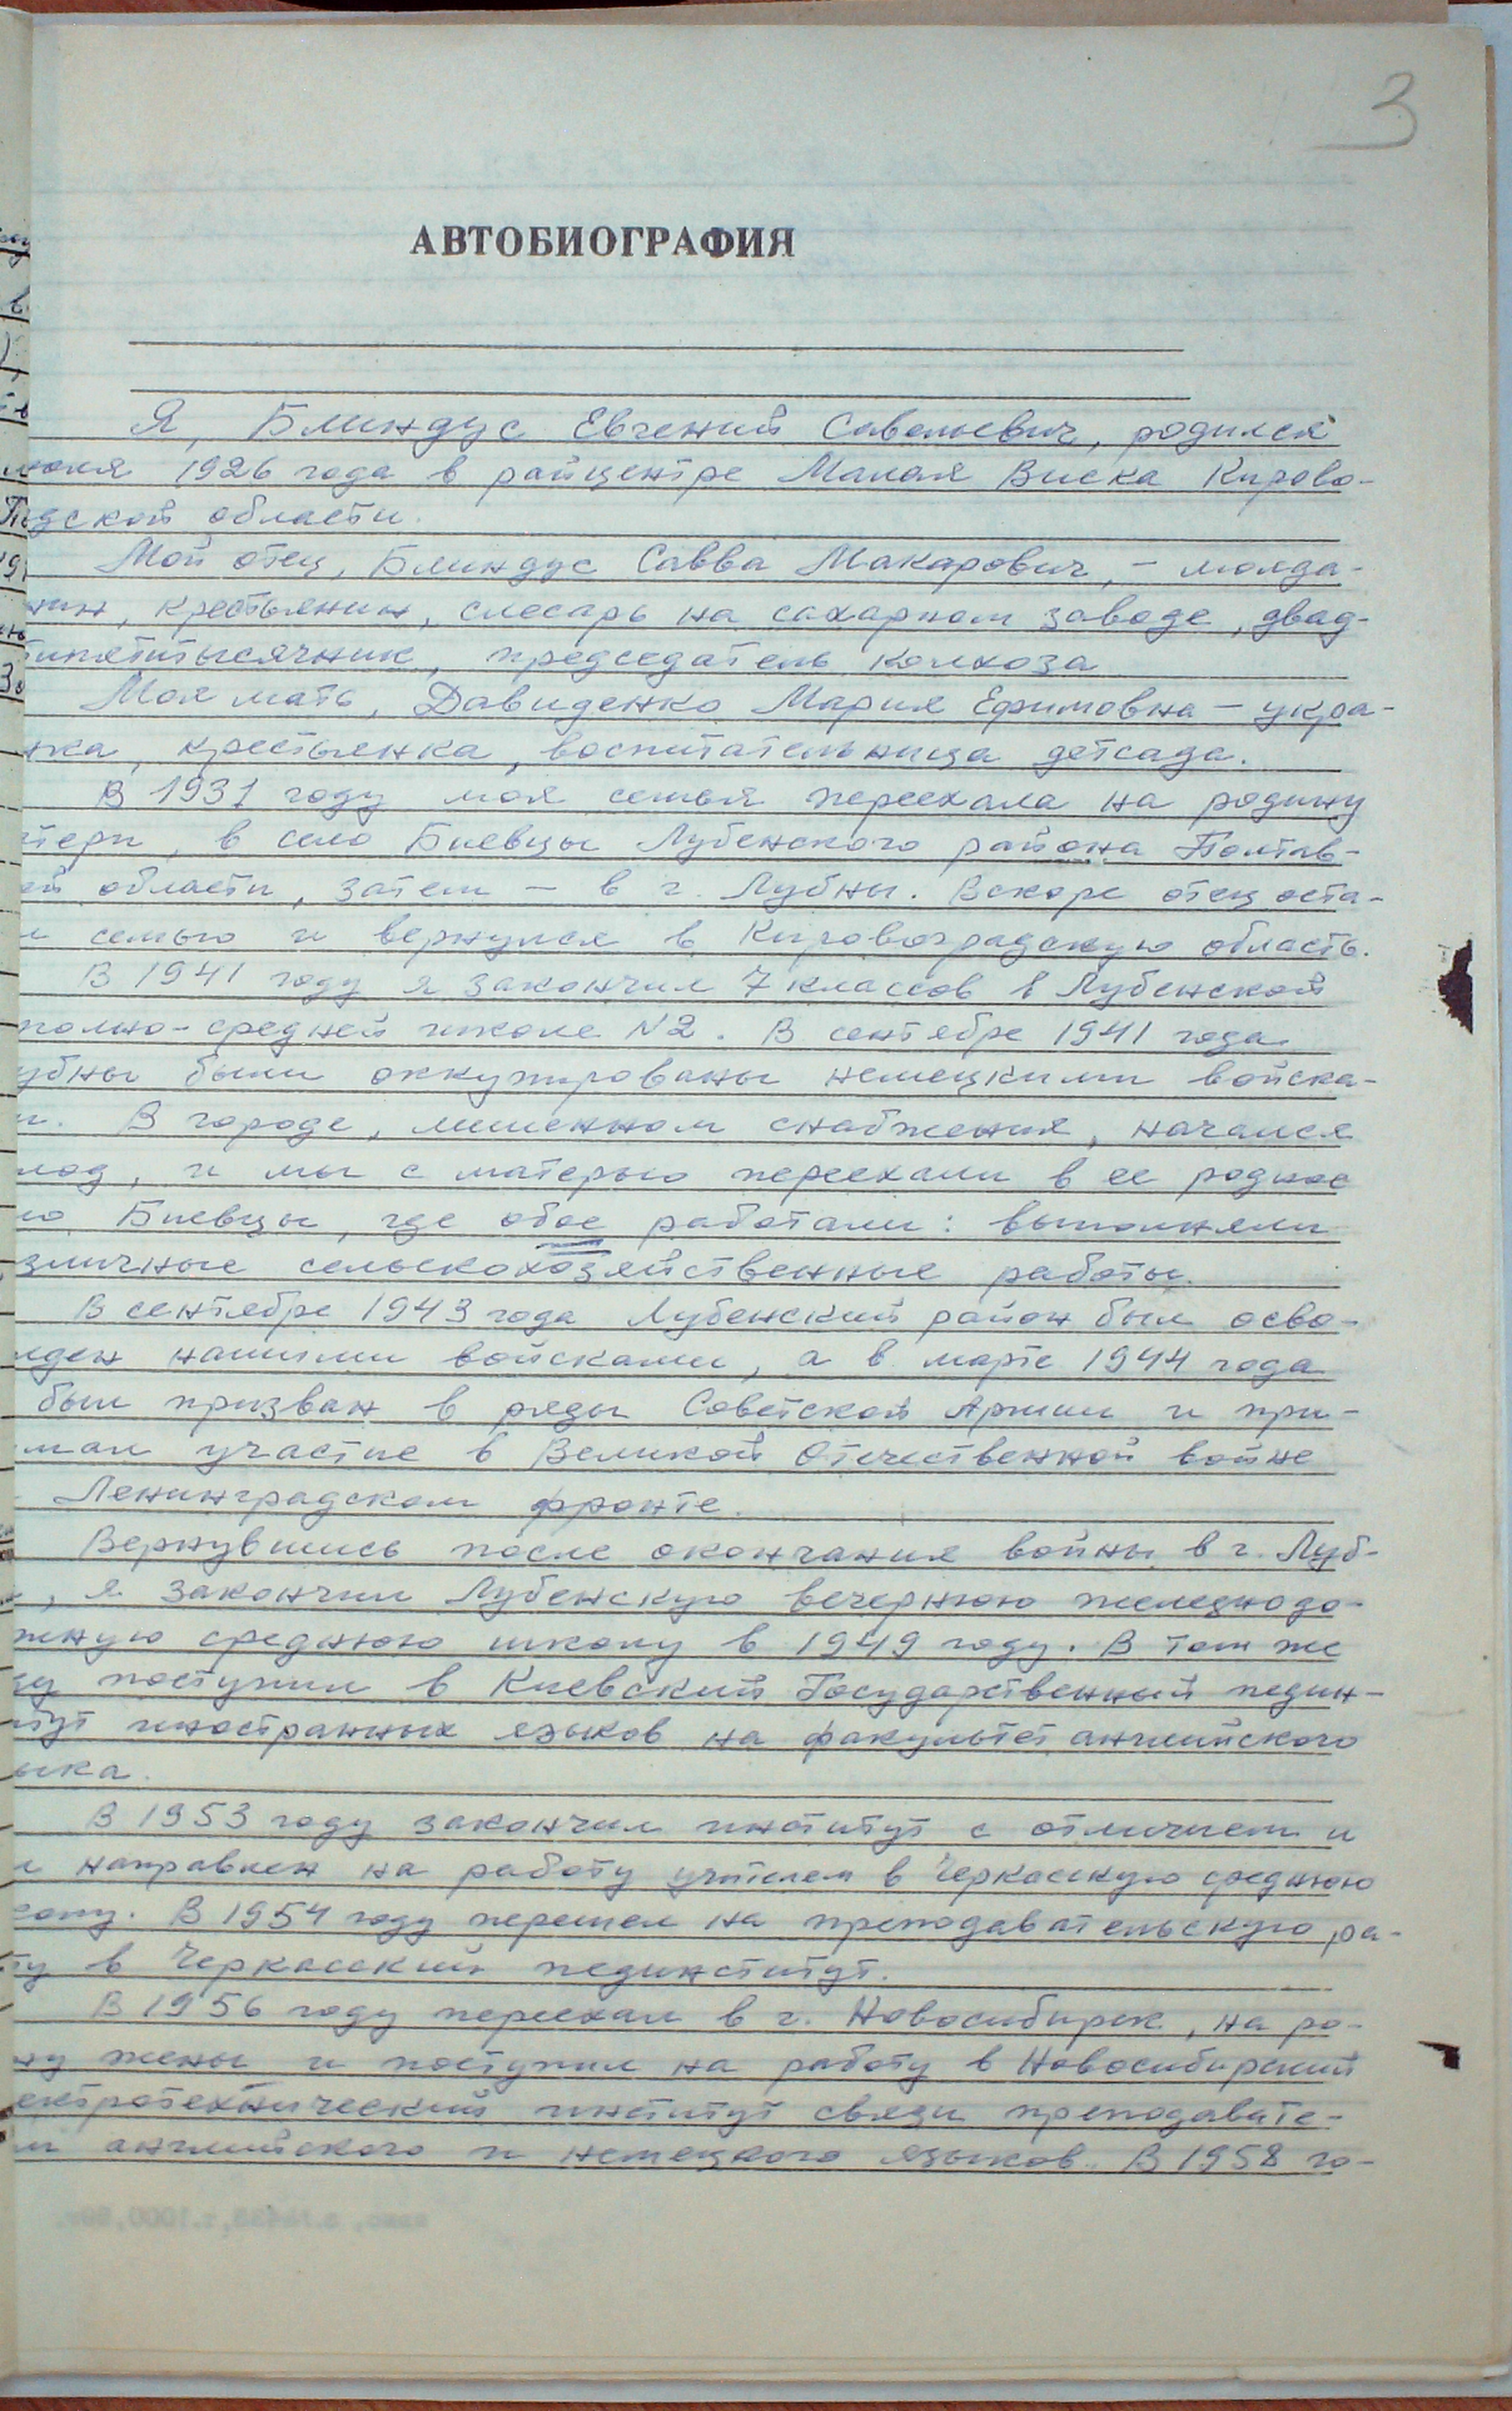 3
АВТОБИОГРАФИЯ
Я, Блиндус Евгений Савельевич, родился
1926 года в райцентре Малая Виска Кирово-
дской области.
Мой отец, Блиндус Савва Макарович, – молда-
нин, крестьянин, слесарь на сахарном заводе, двад-
типятитысячник, председатель колхоза
Моя мать, Давиденко Мария Ефимовна – укра-
нка, крестьянка, воспитательница детсада.
В 1931 году моя семья переехала на родину
тери, в село Биевцы Лубенского района Полтав-
ой области, затем – в г. Лубны. Вскоре отец оста-
л семью и вернулся в Кировоградскую область.
В 1941 году я закончил 7 классов в Лубенской
полно-средней школе N2. В сентябре 1941 года
убны были оккупированы немецкими войска-
и. В городе, лишенном снабжения, начался
лод, и мы с матерью переехали в ее родное
ло Биевцы, где обое работали: выполняли
зличные сельскохозяйственные работы.
В сентябре 1943 года Лубенский район был осво-
жден нашими войсками, а в марте 1944 года
был призван в ряды Советской Армии и при-
мал участие в Великой Отечественной войне
Ленинградском фронте.
Вернувшись после окончания войны в г. Луб-
, я закончил Лубенскую вечернюю железнодо-
жную среднюю школу в 1949 году. В том же
ду поступил в Киевский Государственный педин-
итут иностранных языков на факультет английского
ыка.
В 1953 году закончил институт с отличием и
л направлен на работу учителем в Черкасскую среднюю
колу. В 1954 году перешел на преподавательскую ра-
ту в Черкасский пединститут.
В 1956 году переехал в г. Новосибирск, на ро-
ну жены и поступил на работу в Новосибирский
ектротехнический институт связи преподавате-
м английского и немецкого языков. В 1958 го-